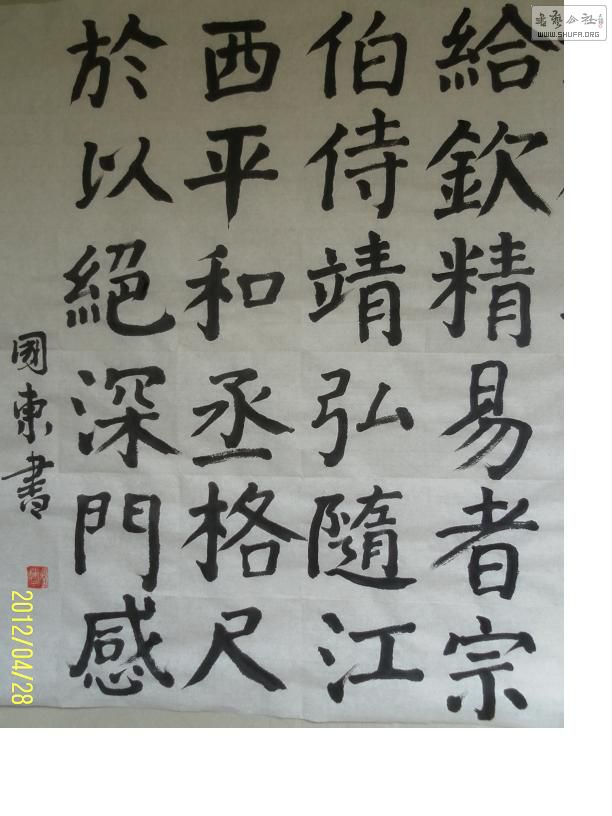 給欽精易者宗
伯侍靖弘隨江
西平和丞格尺
於以絕深門感
國東書
2012/04/28
書藝公社
WWW.SHUFA.ORG